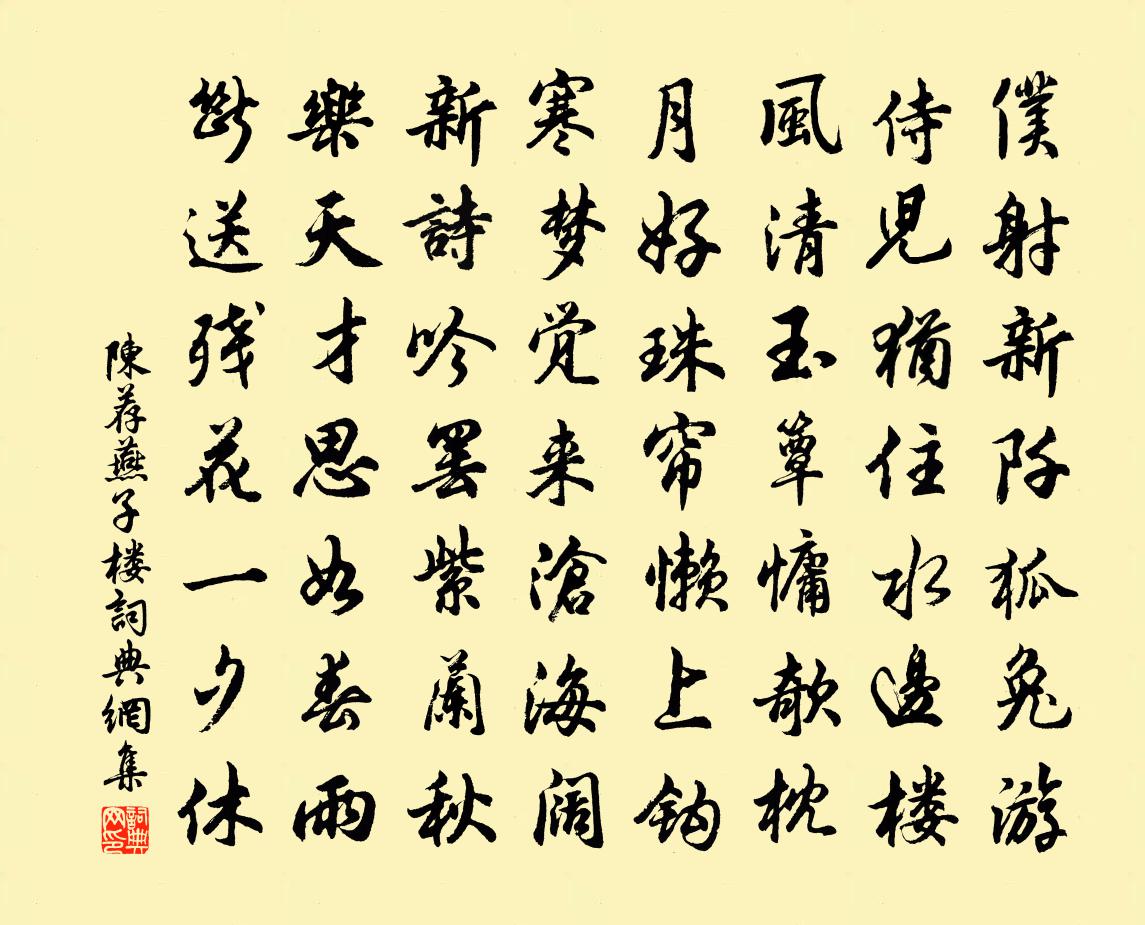 僕射新阡狐兔游
侍児猶住水邊楼
風清玉簟慵欹枕
月好珠帘懒上钩
寒梦觉来滄海阔
新詩吟罢紫蘭秋
樂天才思如春雨
斷送残花一夕休
陳荐燕子楼詞典網集
詞典网印